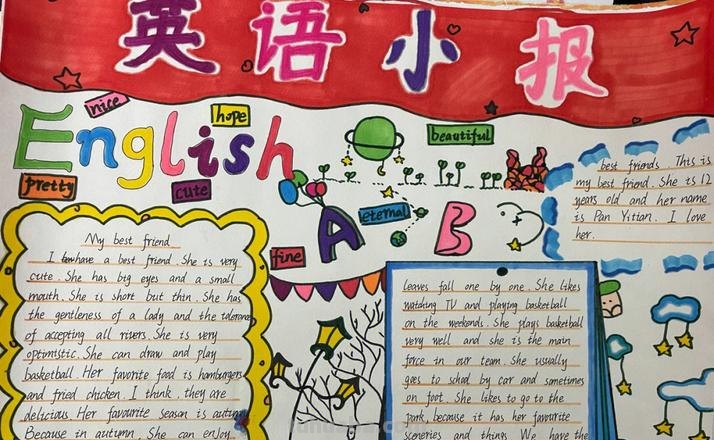 英语小报
English
nice
hope
beautiful
pretty
cute
eternal
fine
A B
My best friend
I have a best friend. She is very
cute. She has big eyes and a small
mouth. She is short but thin. She has
the gentleness of a lady and the tolerance
of accepting all rivers. She is very
optimistic. She can draw and play
basketball. Her favorite food is hamburgers
and fried chicken. I think they are
delicious Her favourite season is autumn
Because in autumn, She can enjoy
leaves fall one by one. She likes
watching TV and playing basketball
on the weekends. She plays basketball
very well and she is the main
force in our team. She usually
goes to school by car and sometimes
on foot. She likes to go to the
park, because it has her favourite
sceneries and things. We have the
best friends. This is
my best friend. She is 12
years old and her name
is Pan Yitian. I love
her.